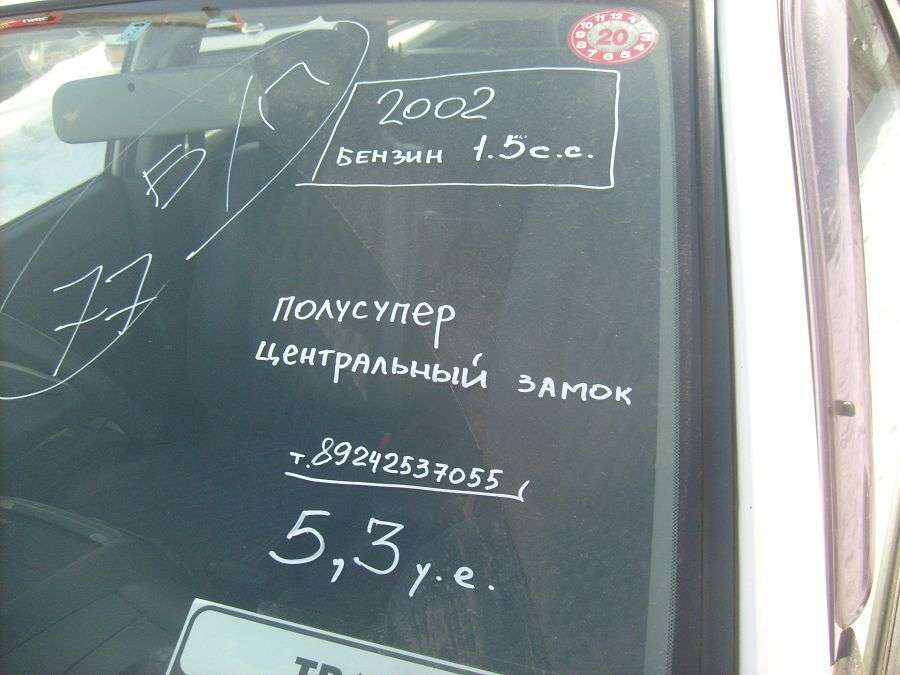 2002
БЕНЗИН 1.5 с.с.
Б/П
77
ПОЛУСУПЕР
ЦЕНТРАЛЬНЫЙ ЗАМОК
т.89242537055
5,3 у.е.
20
10 11 12
9
8 7 6 5 4